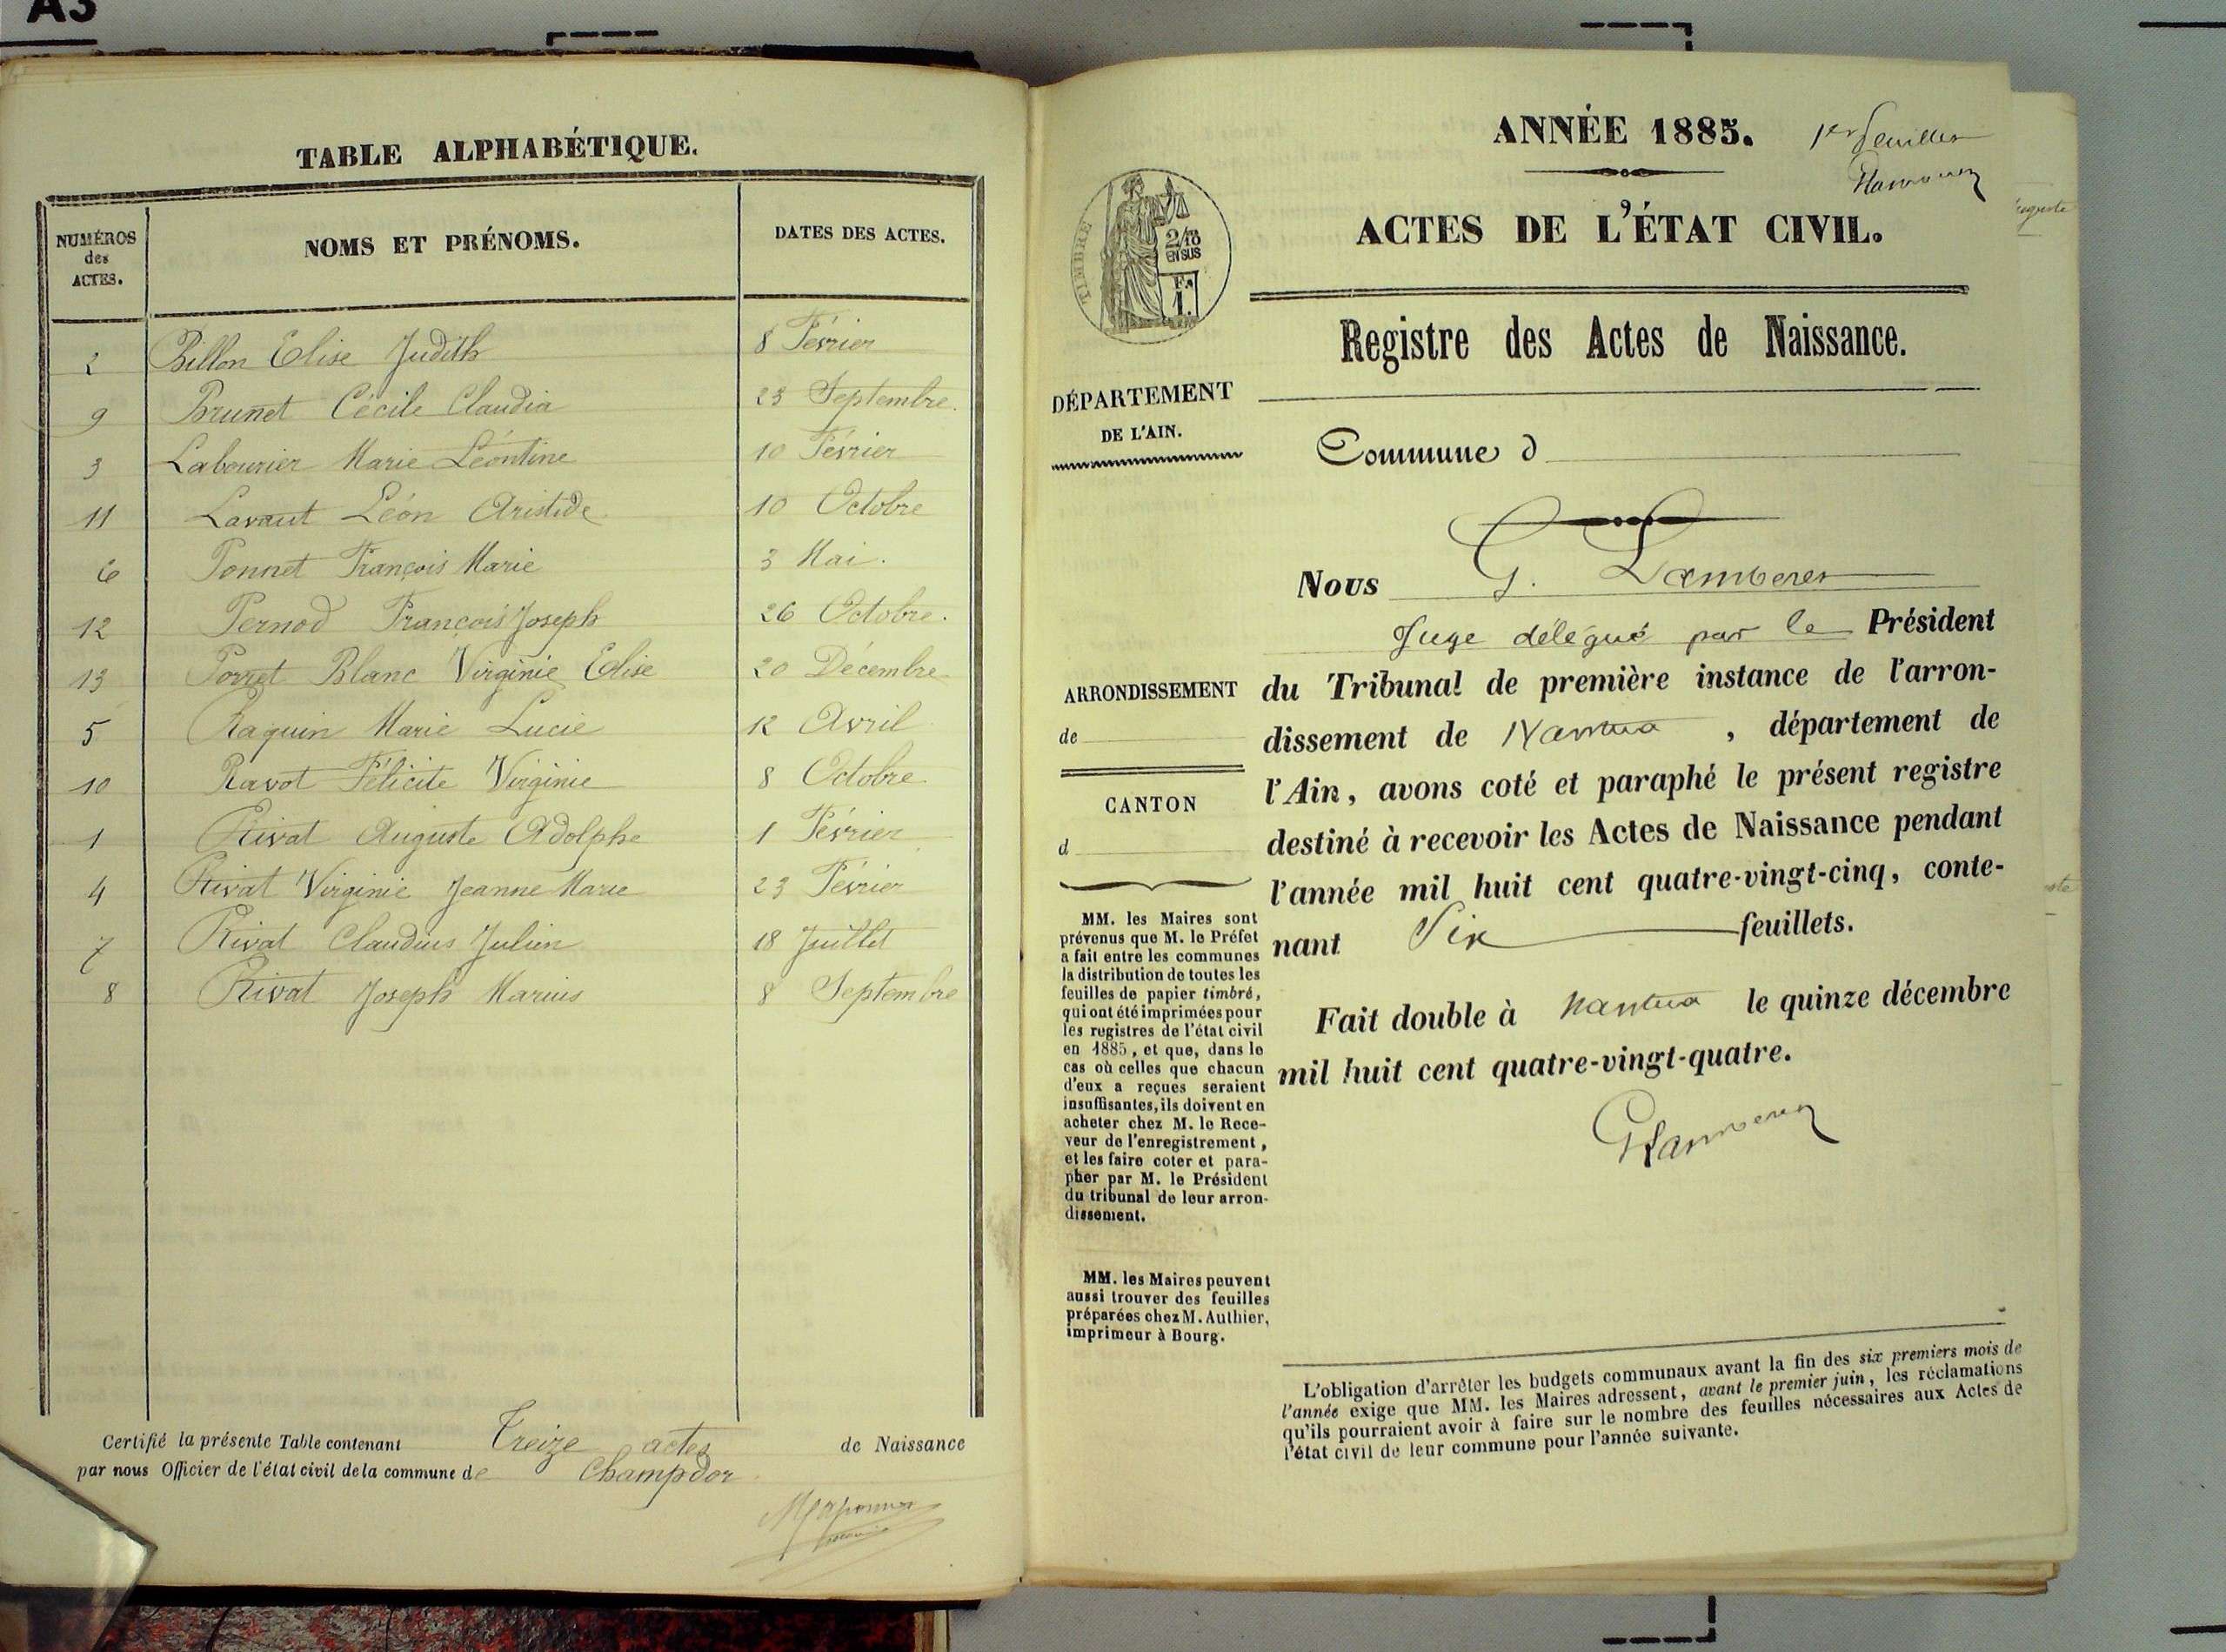 A3
TABLE ALPHABÉTIQUE.
NUMÉROS des ACTES. NOMS ET PRÉNOMS. DATES DES ACTES.
2 Billon Elise Judith 8 Février
9 Brunet Cécile Claudia 23 Septembre.
3 Labourier Marie Léontine 10 Février
11 Lavaut Léon Aristide 10 Octobre
6 Ponnet François Marie 3 Mai.
12 Pernod François Joseph 26 Octobre.
13 Porret Blanc Virginie Elise 20 Décembre
5 Raquin Marie Lucie 12 Avril
10 Ravot Félicite Virginie 8 Octobre
1 Rivat Auguste Adolphe 1 Février
4 Rivat Virginie Jeanne Marie 23 Février
7 Rivat Claudius Julien 18 Juillet
8 Rivat Joseph Marius 8 Septembre
Certifié la présente Table contenant Treize actes de Naissance
par nous Officier de l'état civil de la commune de Champdor
ANNÉE 1885.
1er feuillet
ACTES DE L'ÉTAT CIVIL.
TIMBRE
2/10
EN SUS
1.
Registre des Actes de Naissance.
DÉPARTEMENT
DE L'AIN.
Commune d
Nous G.
Juge délégué par le Président
ARRONDISSEMENT
de
CANTON
d
du Tribunal de première instance de l'arron-
dissement de Nantua , département de
l'Ain, avons coté et paraphé le présent registre
destiné à recevoir les Actes de Naissance pendant
l'année mil huit cent quatre-vingt-cinq, conte-
nant Six feuillets.
Fait double à Nantua le quinze décembre
mil huit cent quatre-vingt-quatre.
MM. les Maires sont
prévenus que M. le Préfet
a fait entre les communes
la distribution de toutes les
feuilles de papier timbré,
qui ont été imprimées pour
les registres de l'état civil
en 1885, et que, dans le
cas où celles que chacun
d'eux a reçues seraient
insuffisantes, ils doivent en
acheter chez M. le Rece-
veur de l'enregistrement,
et les faire coter et para-
pher par M. le Président
du tribunal de leur arron-
dissement.
MM. les Maires peuvent
aussi trouver des feuilles
préparées chez M. Authier,
imprimeur à Bourg.
L'obligation d'arrêter les budgets communaux avant la fin des six premiers mois de
l'année exige que MM. les Maires adressent, avant le premier juin, les réclamations
qu'ils pourraient avoir à faire sur le nombre des feuilles nécessaires aux Actes de
l'état civil de leur commune pour l'année suivante.